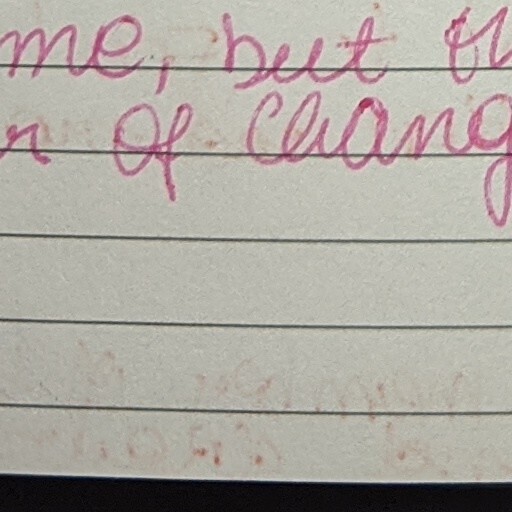 me, but th
n of Chang